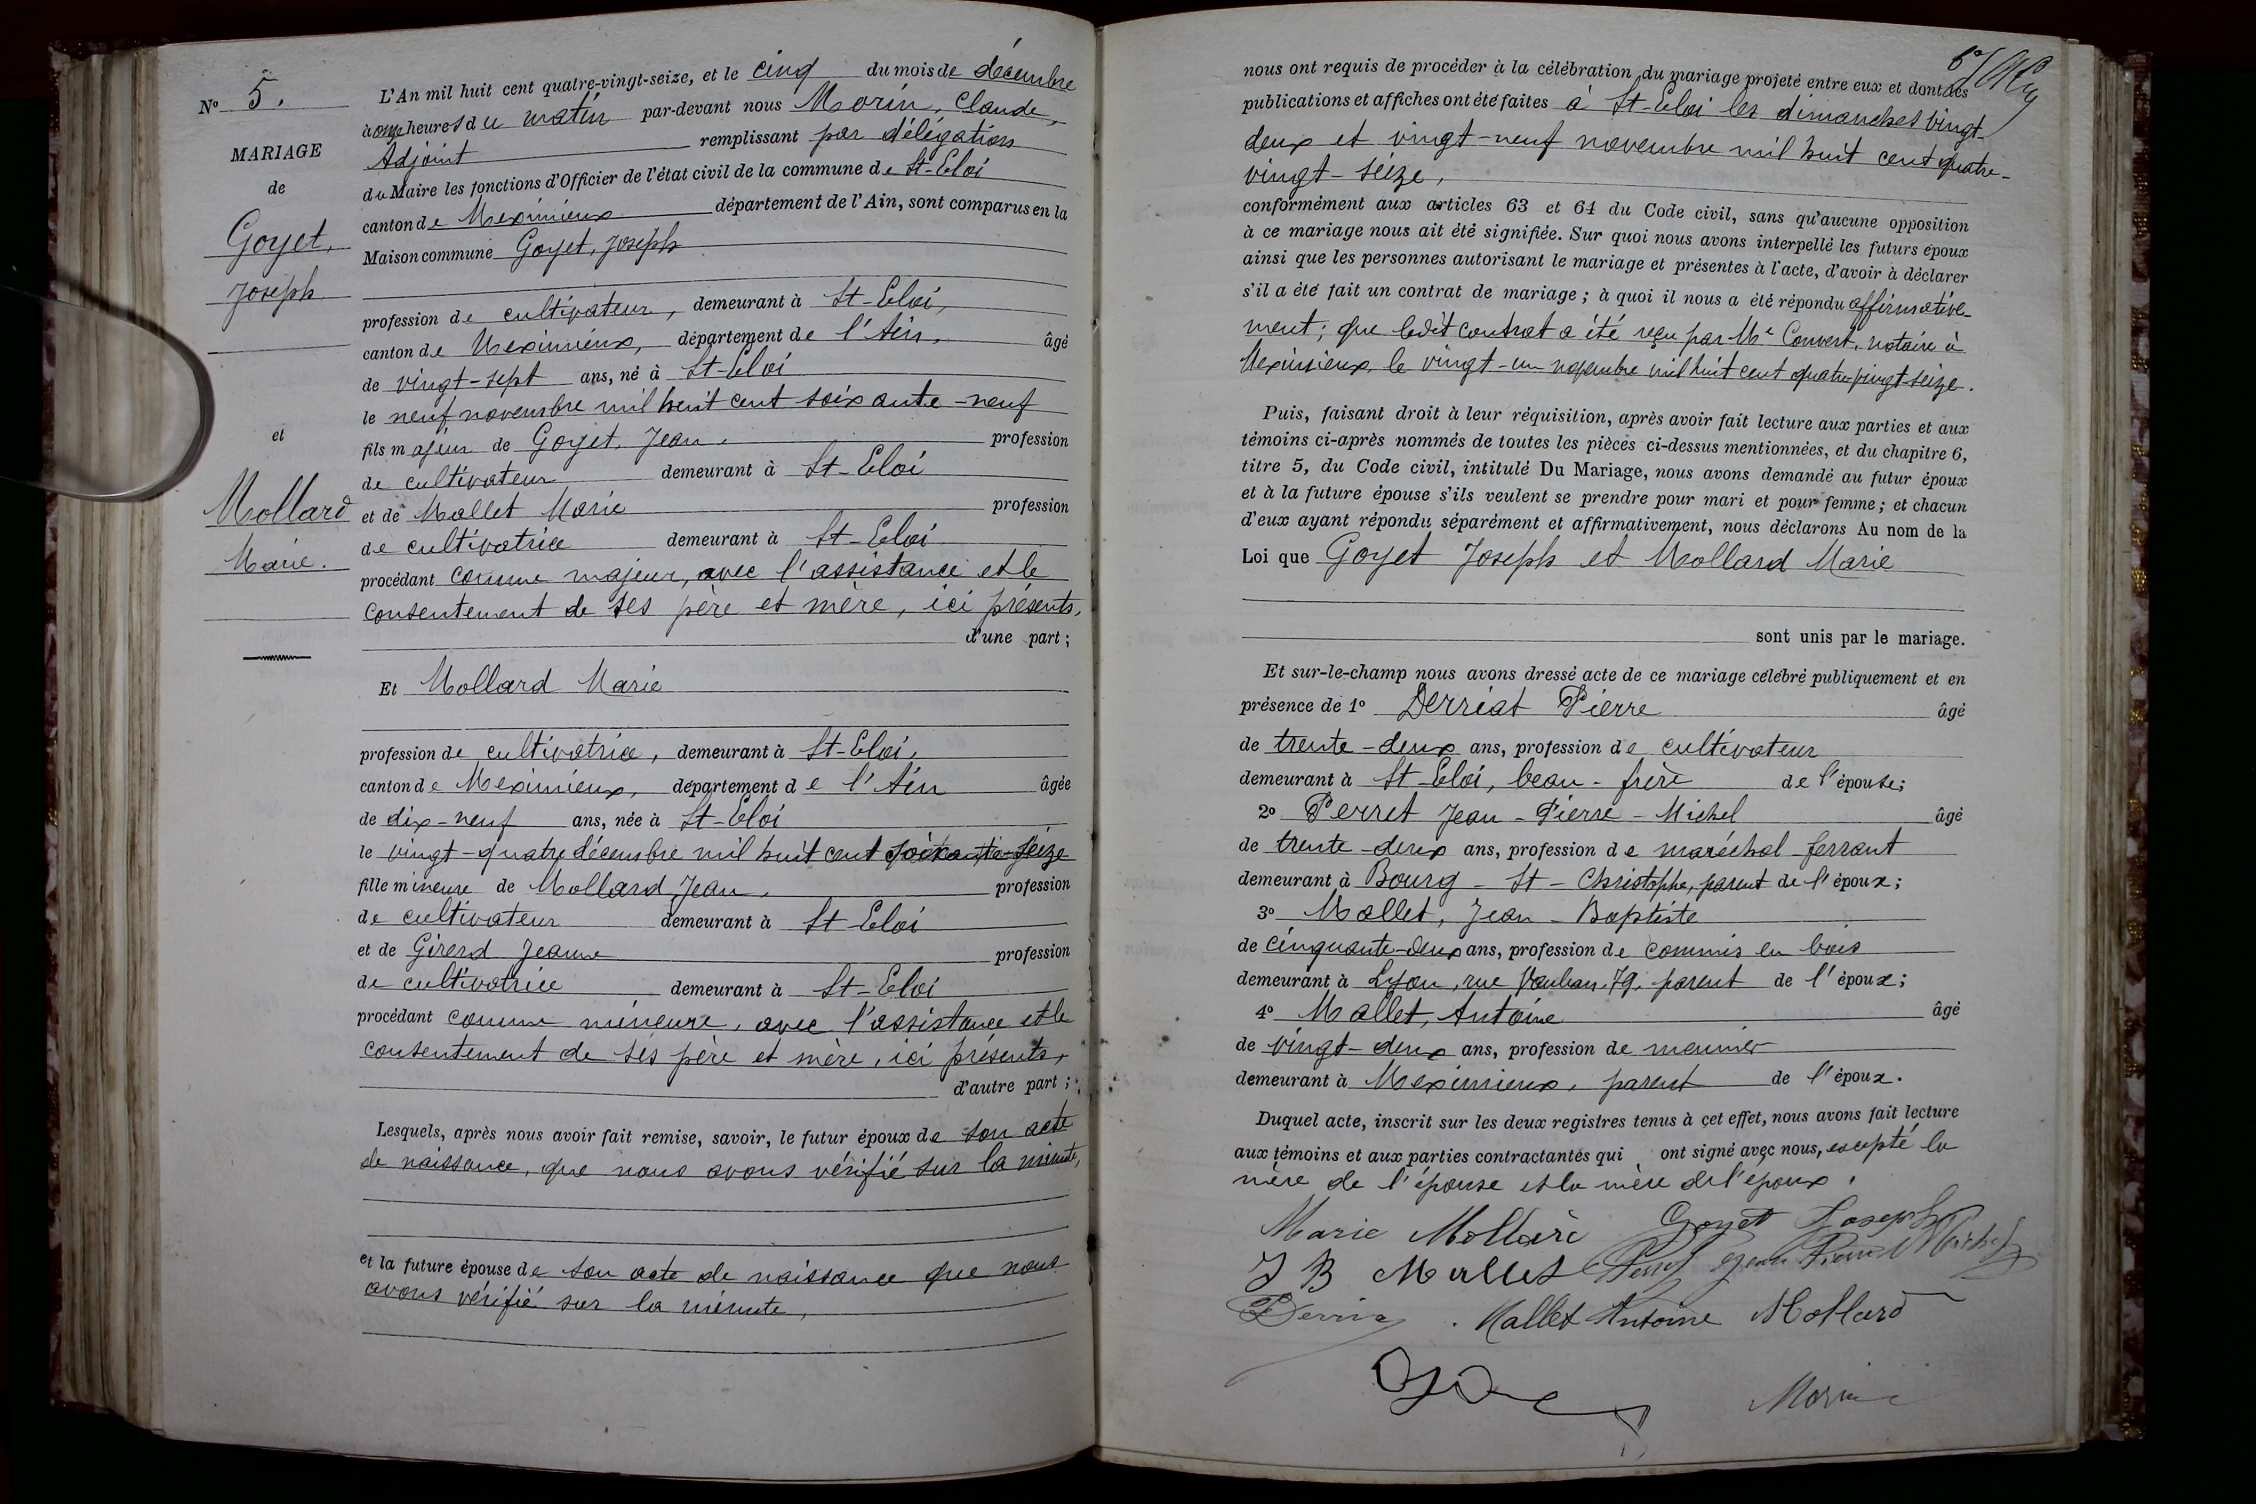 N° 5.
MARIAGE
de
Goyet,
Joseph
et
Mollard
Marie.
L'An mil huit cent quatre-vingt-seize, et le cinq du mois de décembre
à onze heures du matin par-devant nous Morin, Claude,
Adjoint remplissant par délégation
du Maire les fonctions d'Officier de l'état civil de la commune de St-Eloi
canton de Meximieux département de l'Ain, sont comparus en la
Maison commune Goyet, Joseph
profession de cultivateur, demeurant à St-Eloi,
canton de Meximieux, département de l'Ain, âgé
de vingt-sept ans, né à St-Eloi
le neuf novembre mil huit cent soixante-neuf
fils majeur de Goyet, Jean, profession
de cultivateur demeurant à St-Eloi
et de Mallet Marie profession
de cultivatrice demeurant à St-Eloi
procédant comme majeur, avec l'assistance et le
consentement de ses père et mère, ici présents,
d'une part;
Et Mollard Marie
profession de cultivatrice, demeurant à St-Eloi,
canton de Meximieux, département de l'Ain âgée
de dix-neuf ans, née à St-Eloi
le vingt-quatre décembre mil huit cent soixante-seize
fille mineure de Mollard Jean, profession
de cultivateur demeurant à St-Eloi
et de Girerd Jeanne profession
de cultivatrice demeurant à St-Eloi
procédant comme mineure, avec l'assistance et le
consentement de ses père et mère, ici présents,
d'autre part;
Lesquels, après nous avoir fait remise, savoir, le futur époux de son acte
de naissance, que nous avons vérifié sur la minute,
et la future épouse de son acte de naissance que nous
avons vérifié sur la minute,
nous ont requis de procéder à la célébration du mariage projeté entre eux et dont les
publications et affiches ont été faites à St-Eloi les dimanches vingt-
deux et vingt-neuf novembre mil huit cent quatre-
vingt-seize,
conformément aux articles 63 et 64 du Code civil, sans qu'aucune opposition
à ce mariage nous ait été signifiée. Sur quoi nous avons interpellé les futurs époux
ainsi que les personnes autorisant le mariage et présentes à l'acte, d'avoir à déclarer
s'il a été fait un contrat de mariage; à quoi il nous a été répondu affirmative-
ment; que ledit contrat a été reçu par Me Convert, notaire à
Meximieux, le vingt-un novembre mil huit cent quatre-vingt-seize.
Puis, faisant droit à leur réquisition, après avoir fait lecture aux parties et aux
témoins ci-après nommés de toutes les pièces ci-dessus mentionnées, et du chapitre 6,
titre 5, du Code civil, intitulé Du Mariage, nous avons demandé au futur époux
et à la future épouse s'ils veulent se prendre pour mari et pour femme; et chacun
d'eux ayant répondu séparément et affirmativement, nous déclarons Au nom de la
Loi que Goyet Joseph et Mollard Marie
sont unis par le mariage.
Et sur-le-champ nous avons dressé acte de ce mariage célébré publiquement et en
présence de 1° Derriat Pierre âgé
de trente-deux ans, profession de cultivateur
demeurant à St-Eloi, beau-frère de l'épouse;
2° Perret Jean-Pierre-Michel âgé
de trente-deux ans, profession de maréchal-ferrant
demeurant à Bourg-St-Christophe, parent de l'époux;
3° Mallet, Jean-Baptiste
de cinquante-deux ans, profession de commis en bois
demeurant à Lyon, rue Vauban, 79, parent de l'époux;
4° Mallet, Antoine âgé
de vingt-deux ans, profession de meunier
demeurant à Meximieux, parent de l'époux.
Duquel acte, inscrit sur les deux registres tenus à cet effet, nous avons fait lecture
aux témoins et aux parties contractantes qui ont signé avec nous, excepté la
mère de l'épouse et la mère de l'époux.
Marie Mollard Goyet Joseph
J B Mallet Perret Jean Pierre Michel
Mallet Antoine Mollard
Morin